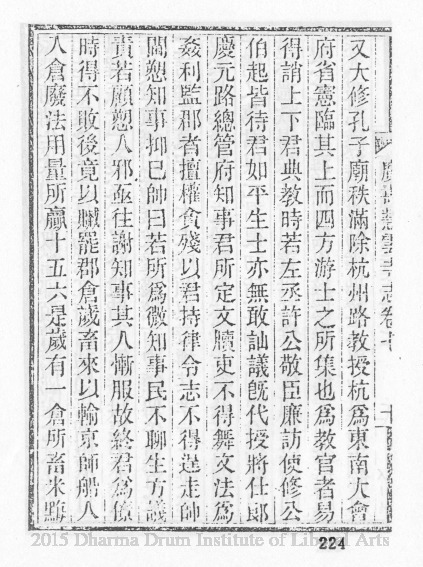 又大修孔子廟秩滿除杭州路教授杭爲東南大會
府省憲臨其上而四方游士之所集也爲教官者易
得誚上下君典教時若左丞許公敬臣廉訪使修公
伯起皆待君如平生士亦無敢訕議旣代授將仕郎
慶元路總管府知事君所定文牘吏不得舞文法爲
姦利監郡者擅權貪殘以君持律令志不得逞走帥
閫愬知事抑巳帥曰若所爲微知事民不聊生方議
責若顧愬人邪亟往謝知事其人慚服故終君爲僚
時得不敗後竟以贓罷郡倉歲畜來以輸京師船人
入倉廢法用量所贏十五六是歲有一倉所畜米
2015 Dharma Drum Institute of Liberal Arts
224